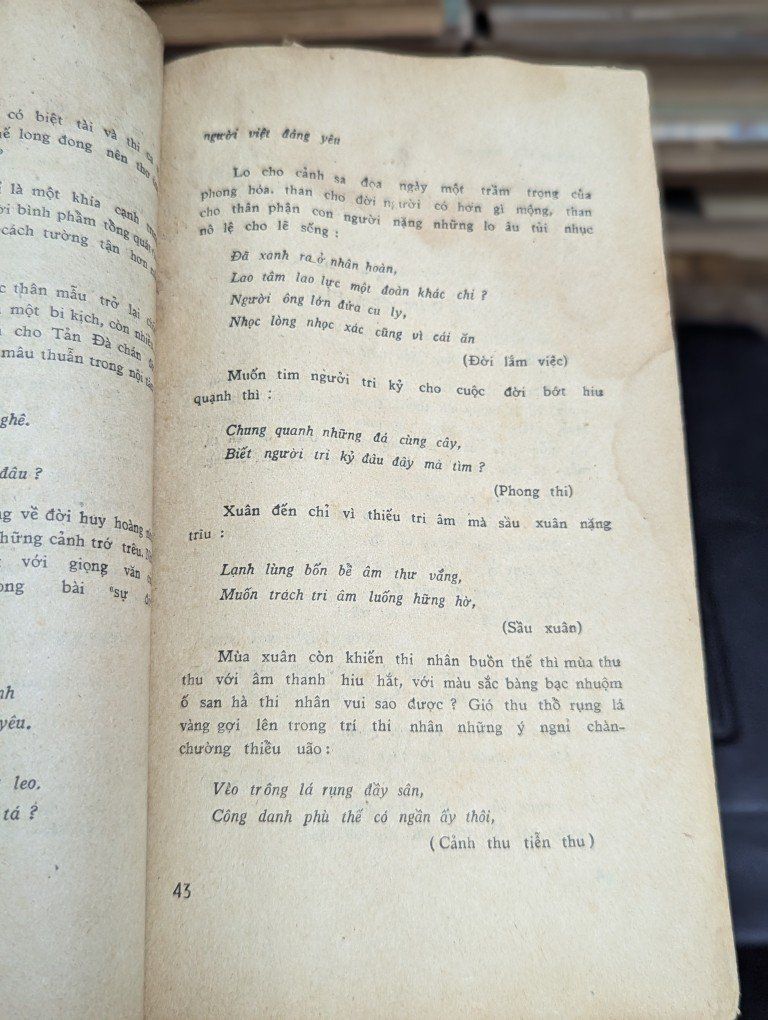 có biệt tài và thi ca
long đong nên thơ
là một khía cạnh
bình phầm tổng quát
cách tường tận hơn
thân mẫu trở lại
một bi kịch, còn nhiều
cho Tản Đà chán
mâu thuẫn trong nội
ghê.
đâu ?
về đời huy hoàng
những cảnh trớ trêu.
với giọng văn
bài "sự
yêu.
leo.
tá ?
người việt đáng yêu
Lo cho cảnh sa đọa ngày một trầm trọng của
phong hóa, than cho đời người có hơn gì mộng, than
cho thân phận con người nặng những lo âu tủi nhục
nô lệ cho lẽ sống :
Đã xanh ra ở nhân hoàn,
Lao tâm lao lực một đoàn khác chi ?
Người ông lớn đứa cu ly,
Nhọc lòng nhọc xác cũng vì cái ăn
(Đời lắm việc)
Muốn tìm người tri kỷ cho cuộc đời bớt hiu
quạnh thì :
Chung quanh những đá cùng cây,
Biết người tri kỷ đâu đây mà tìm ?
(Phong thi)
Xuân đến chỉ vì thiếu tri âm mà sầu xuân nặng
trĩu :
Lạnh lùng bốn bề âm thư vắng,
Muốn trách tri âm luống hững hờ,
(Sầu xuân)
Mùa xuân còn khiến thi nhân buồn thế thì mùa thư
thu với âm thanh hiu hắt, với màu sắc bàng bạc nhuộm
ố san hà thi nhân vui sao được ? Gió thu thồ rụng lá
vàng gợi lên trong trí thi nhân những ý ngnỉ chàn-
chường thiều uão :
Vèo trông lá rụng đầy sân,
Công danh phù thế có ngần ấy thôi,
(Cảnh thu tiễn thu)
43